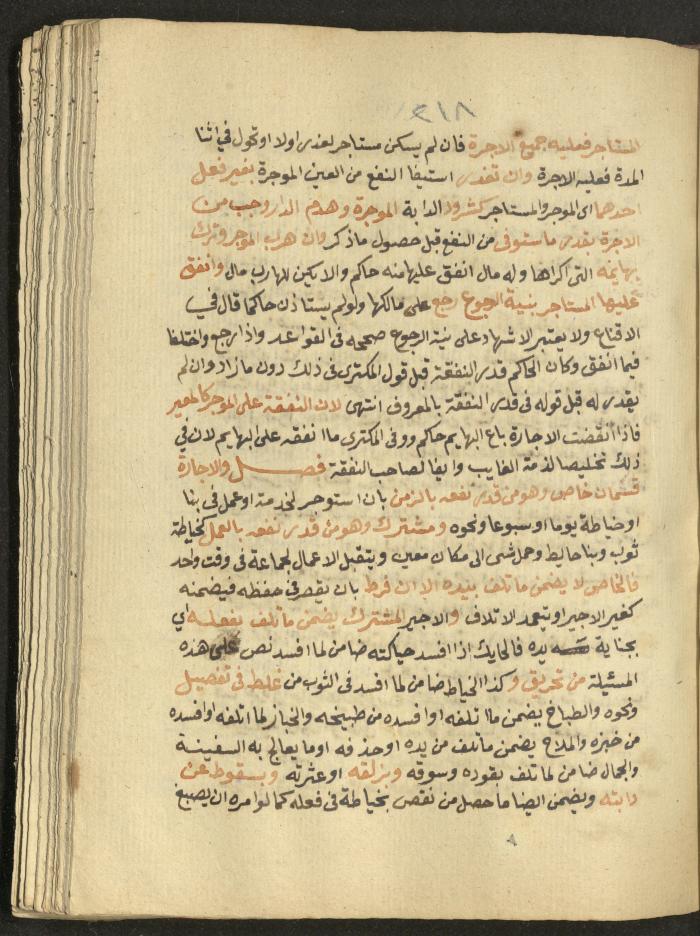 ٣١٨
المستاجر فعليه جميع الاجرة فان لم يسكن مستاجر لعذر اولا او تحول في اثنا
المدة فعليه الاجرة وان تعذر استيفا النفع من العين الموجرة بغير فعل
احدهما اى الموجر والمستاجر كشرود الدابة الموجرة وهدم الدار وجب من
الاجرة بقدر ما ستوفى من النفع قبل حصول ما ذكر وان هرب الموجر وترك
بهايمه التى اكراها وله مال انفق عليها منه حاكم والا يكين للهارب مال وانفق
عليها المستاجر بنية الرجوع رجع على مالكها ولو لم يستاذن حاكما قال في
الاقناع ولا يعتبر الاشهاد على نية الرجوع صححه فى القواعد واذا رجع واختلفا
فيما انفق وكان الحاكم قدر النفقة قبل قول المكترى فى ذلك دون ما زاد وان لم
يقدر له قبل قوله فى قدر النفقة بالمعروف انتهى لان النفقة على الموجر كالمعير
فاذا انقضت الاجارة باع البهايم حاكم ووفى المكترى ما انفقه على البهايم لان في
ذلك تخليصا لذمة الغايب وايفا لصاحب النفقة فصل والاجارة
قسمان خاص وهو من قدر نفعه بالزمن بان استوجر لخدمة او عمل فى بنا
او خياطة يوما او سبوعا ونحوه ومشترك وهو من قدر نفعه بالعمل كخياطة
ثوب وبنا حايط وحمل شى الى مكان معين ويتقبل الاعمال لجماعة فى وقت واحد
فالخاص لا يضمن ما تلف بيده الا ان فرط بان يقصر فى حفظه فيضمنه
كغير الاجير او يتعمد الاتلاف والاجير المشترك يضمن ما تلف بفعله اي
بجناية يده فالحايك اذا افسد حياكته ضامن لما افسد نص على هذه
المسئلة من تحريق وكذا الخياط ضامن لما افسد فى الثوب من غلط فى تفصيل
ونحوه والطباخ يضمن ما اتلفه او افسده من طبيخه والخباز لما اتلفه او افسده
من خبزه والملاح يضمن ما تلف من يده او حذفه او ما يعالج به السفينة
والجمال ضامن لما تلف بقوده وسوقه وبزلقه او عثرته وبسقوط عن
دابته ويضمن ايضا ما حصل من نقص بخياطة فى فعله كما لو امره ان يصبغ